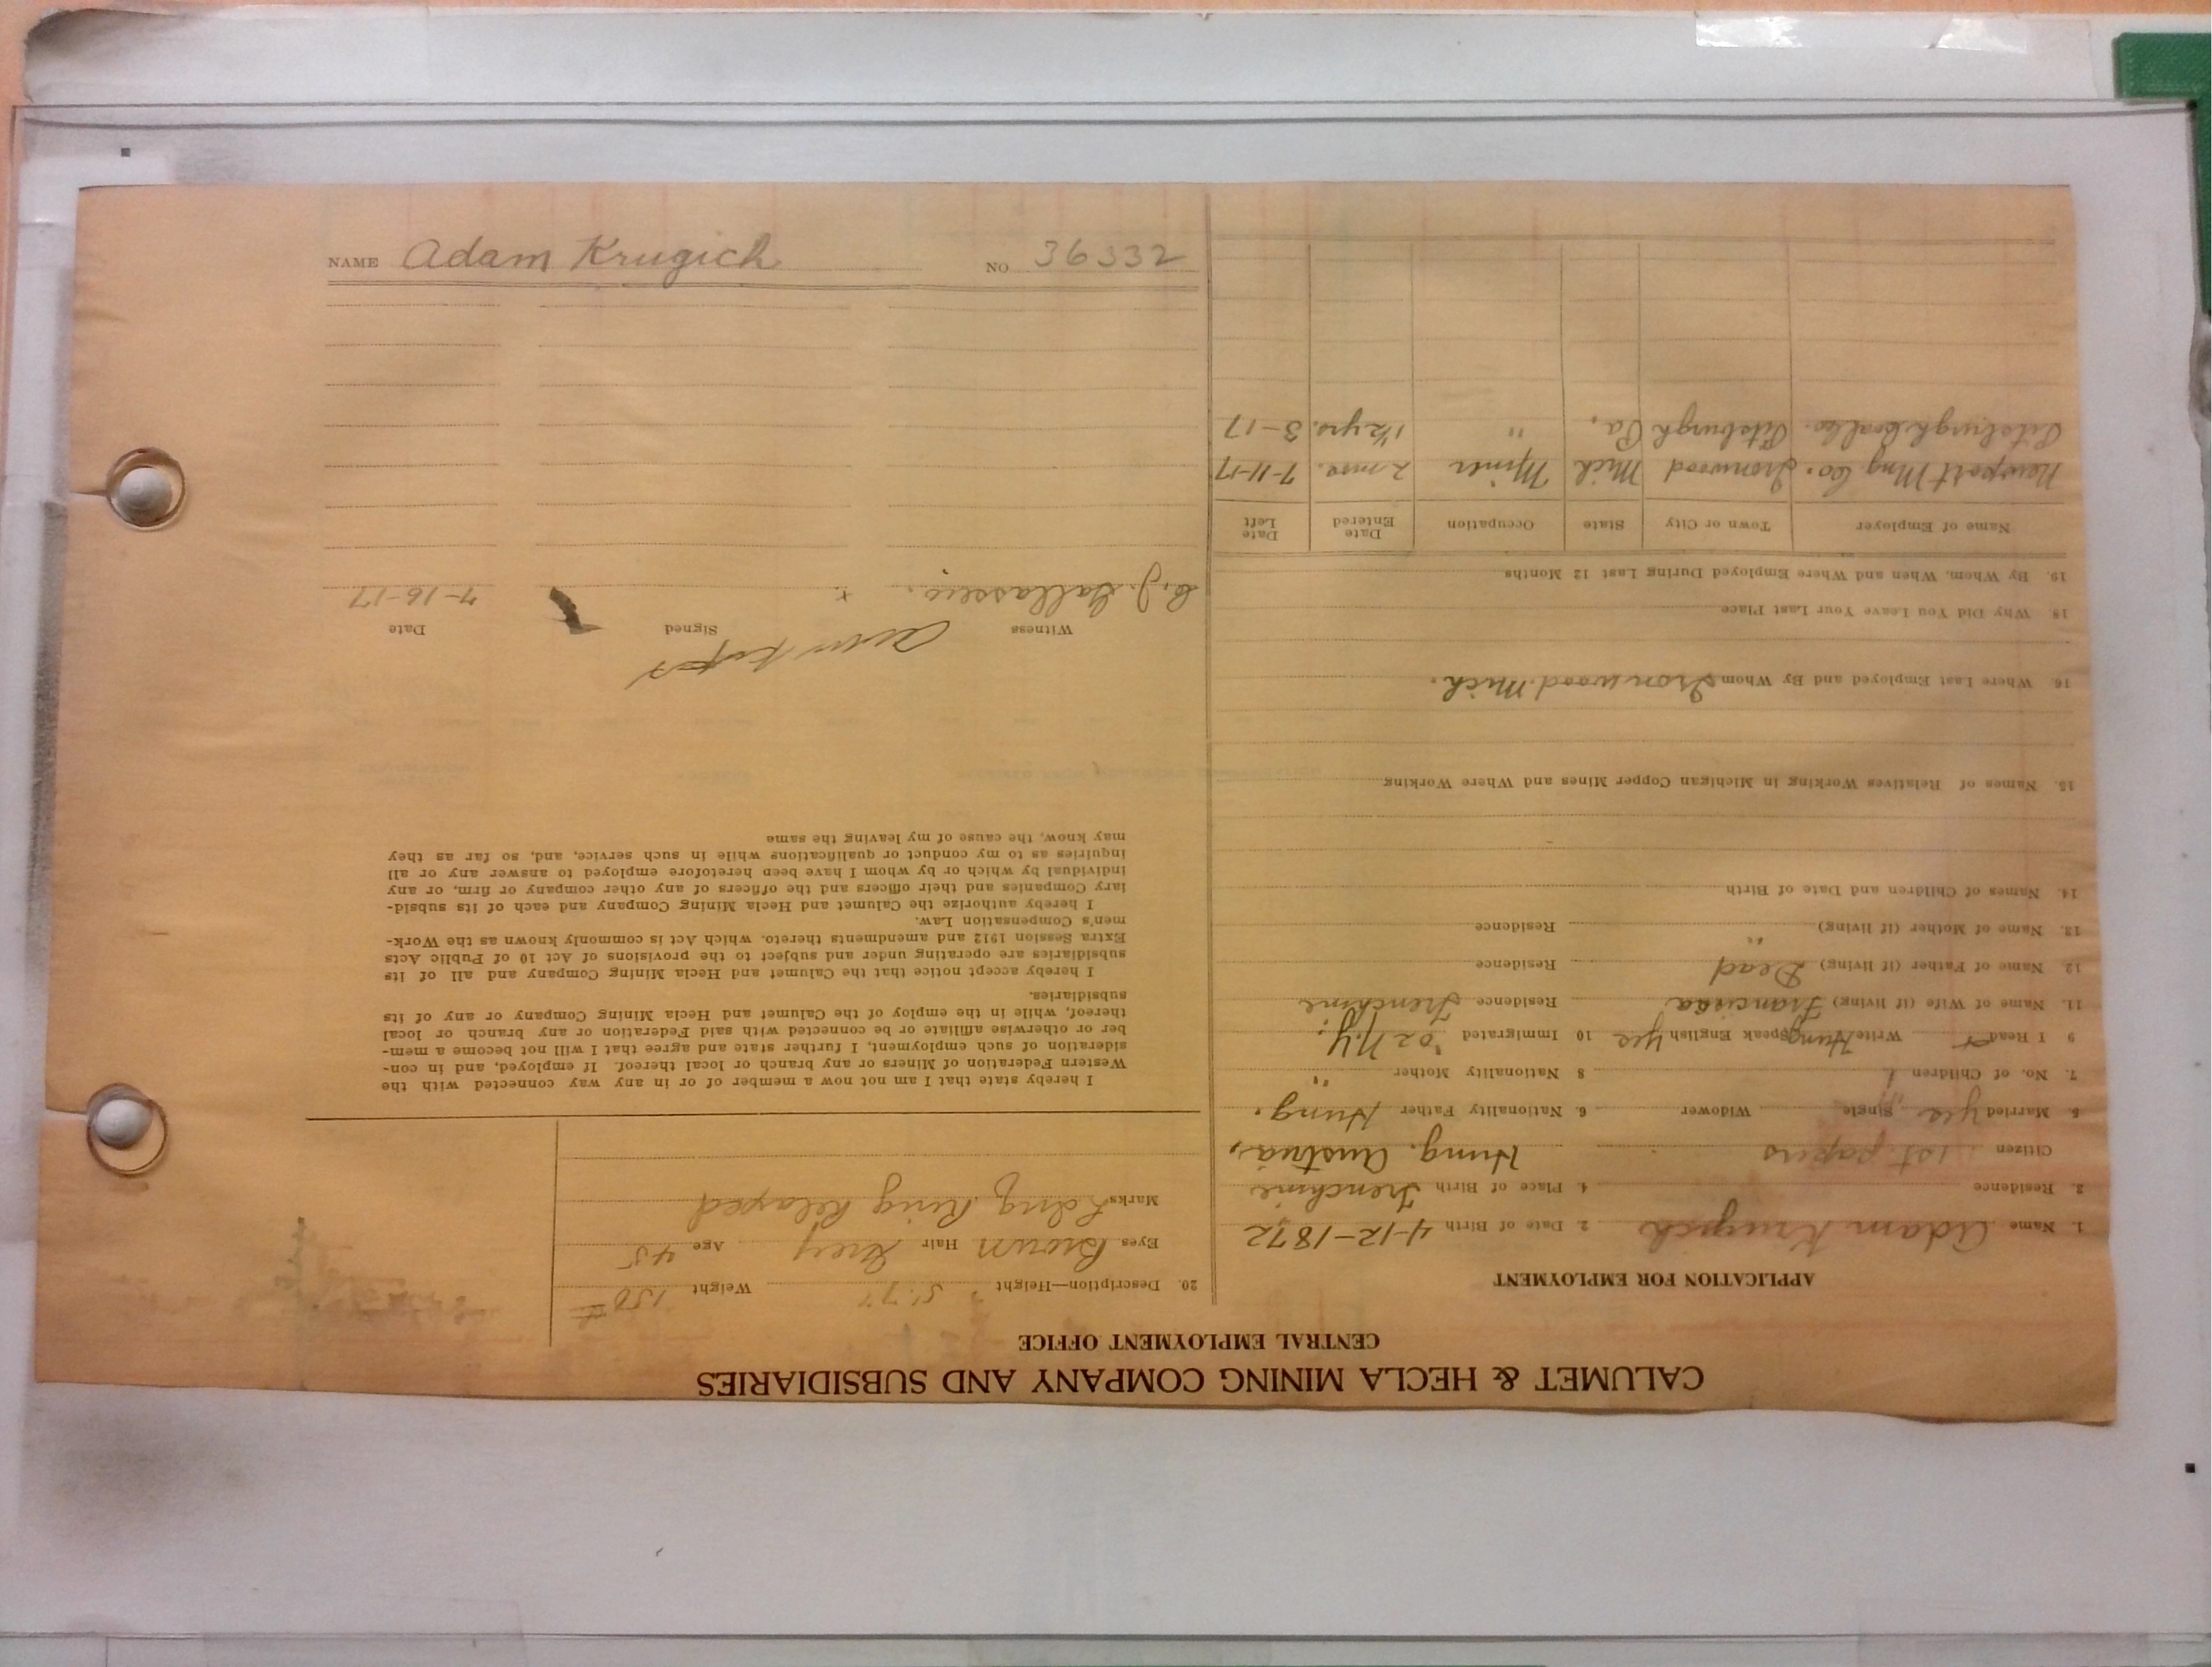 CALUMET & HECLA MINING COMPANY AND SUBSIDIARIES
CENTRAL EMPLOYMENT OFFICE
APPLICATION FOR EMPLOYMENT
1. Name Adam Krugich 2. Date of Birth 4-12-1872
3. Residence 4. Place of Birth Frenchme
Citizen 1st papers Hung. Austria,
5. Married yes Single Widower 6. Nationality Father Hung.
7. No. of Children 1 8 Nationality Mother "
9 I Read Write Hung Speak English yes 10 Immigrated '02 NY.
11. Name of Wife (if living) Francisca Residence Frenchme
12. Name of Father (if living) Dead Residence
13. Name of Mother (if living) " Residence
14. Names of Children and Date of Birth
15. Names of Relatives Working in Michigan Copper Mines and Where Working
16. Where Last Employed and By Whom Ironwood Mich.
18. Why Did You Leave Your Last Place
19. By Whom, When and Where Employed During Last 12 Months
Name of Employer Town or City State Occupation Date Entered Date Left
Newport Mng Co. Ironwood Mich Miner 2 mos. 7-11-17
Pitsburgh Coal Co. Pitsburgh Pa. " 1½ yrs. 3-17
20. Description—Height 5' 7" Weight 150#
Eyes Brown Hair Grey Age 45
Marks L. Ing. Ring Relaxed
I hereby state that I am not now a member of or in any way connected with the
Western Federation of Miners or any branch or local thereof. If employed, and in con-
sideration of such employment, I further state and agree that I will not become a mem-
ber or otherwise affiliate or be connected with said Federation or any branch or local
thereof, while in the employ of the Calumet and Hecla Mining Company or any of its
subsidiaries.
I hereby accept notice that the Calumet and Hecla Mining Company and all of its
subsidiaries are operating under and subject to the provisions of Act 10 of Public Acts
Extra Session 1912 and amendments thereto. which Act is commonly known as the Work-
men's Compensation Law.
I hereby authorize the Calumet and Hecla Mining Company and each of its subsid-
iary Companies and their officers and the officers of any other company or firm, or any
individual by which or by whom I have been heretofore employed to answer any or all
inquiries as to my conduct or qualifications while in such service, and, so far as they
may know, the cause of my leaving the same
Witness Signed Date
C. J. x 7-16-17
NAME Adam Krugich NO 36332